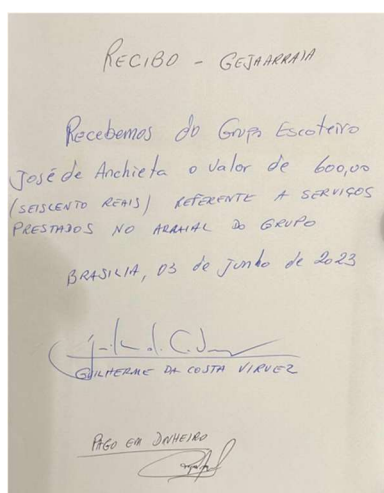 RECIBO - GEJAARRAIA
Recebemos do Grupo Escoteiro
José de Anchieta o valor de 600,00
(SEISCENTO REAIS) REFERENTE A SERVIÇOS
PRESTADOS NO ARRAIAL DO GRUPO
BRASILIA, 03 de Junho de 2023
GUILHERME DA COSTA VIRVEZ
PAGO EM DINHEIRO